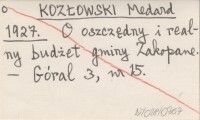 KOZŁOWSKI Medard
1927. O oszczędny i real-
ny budżet gminy Zakopane.
— Góral 3, nr 15.